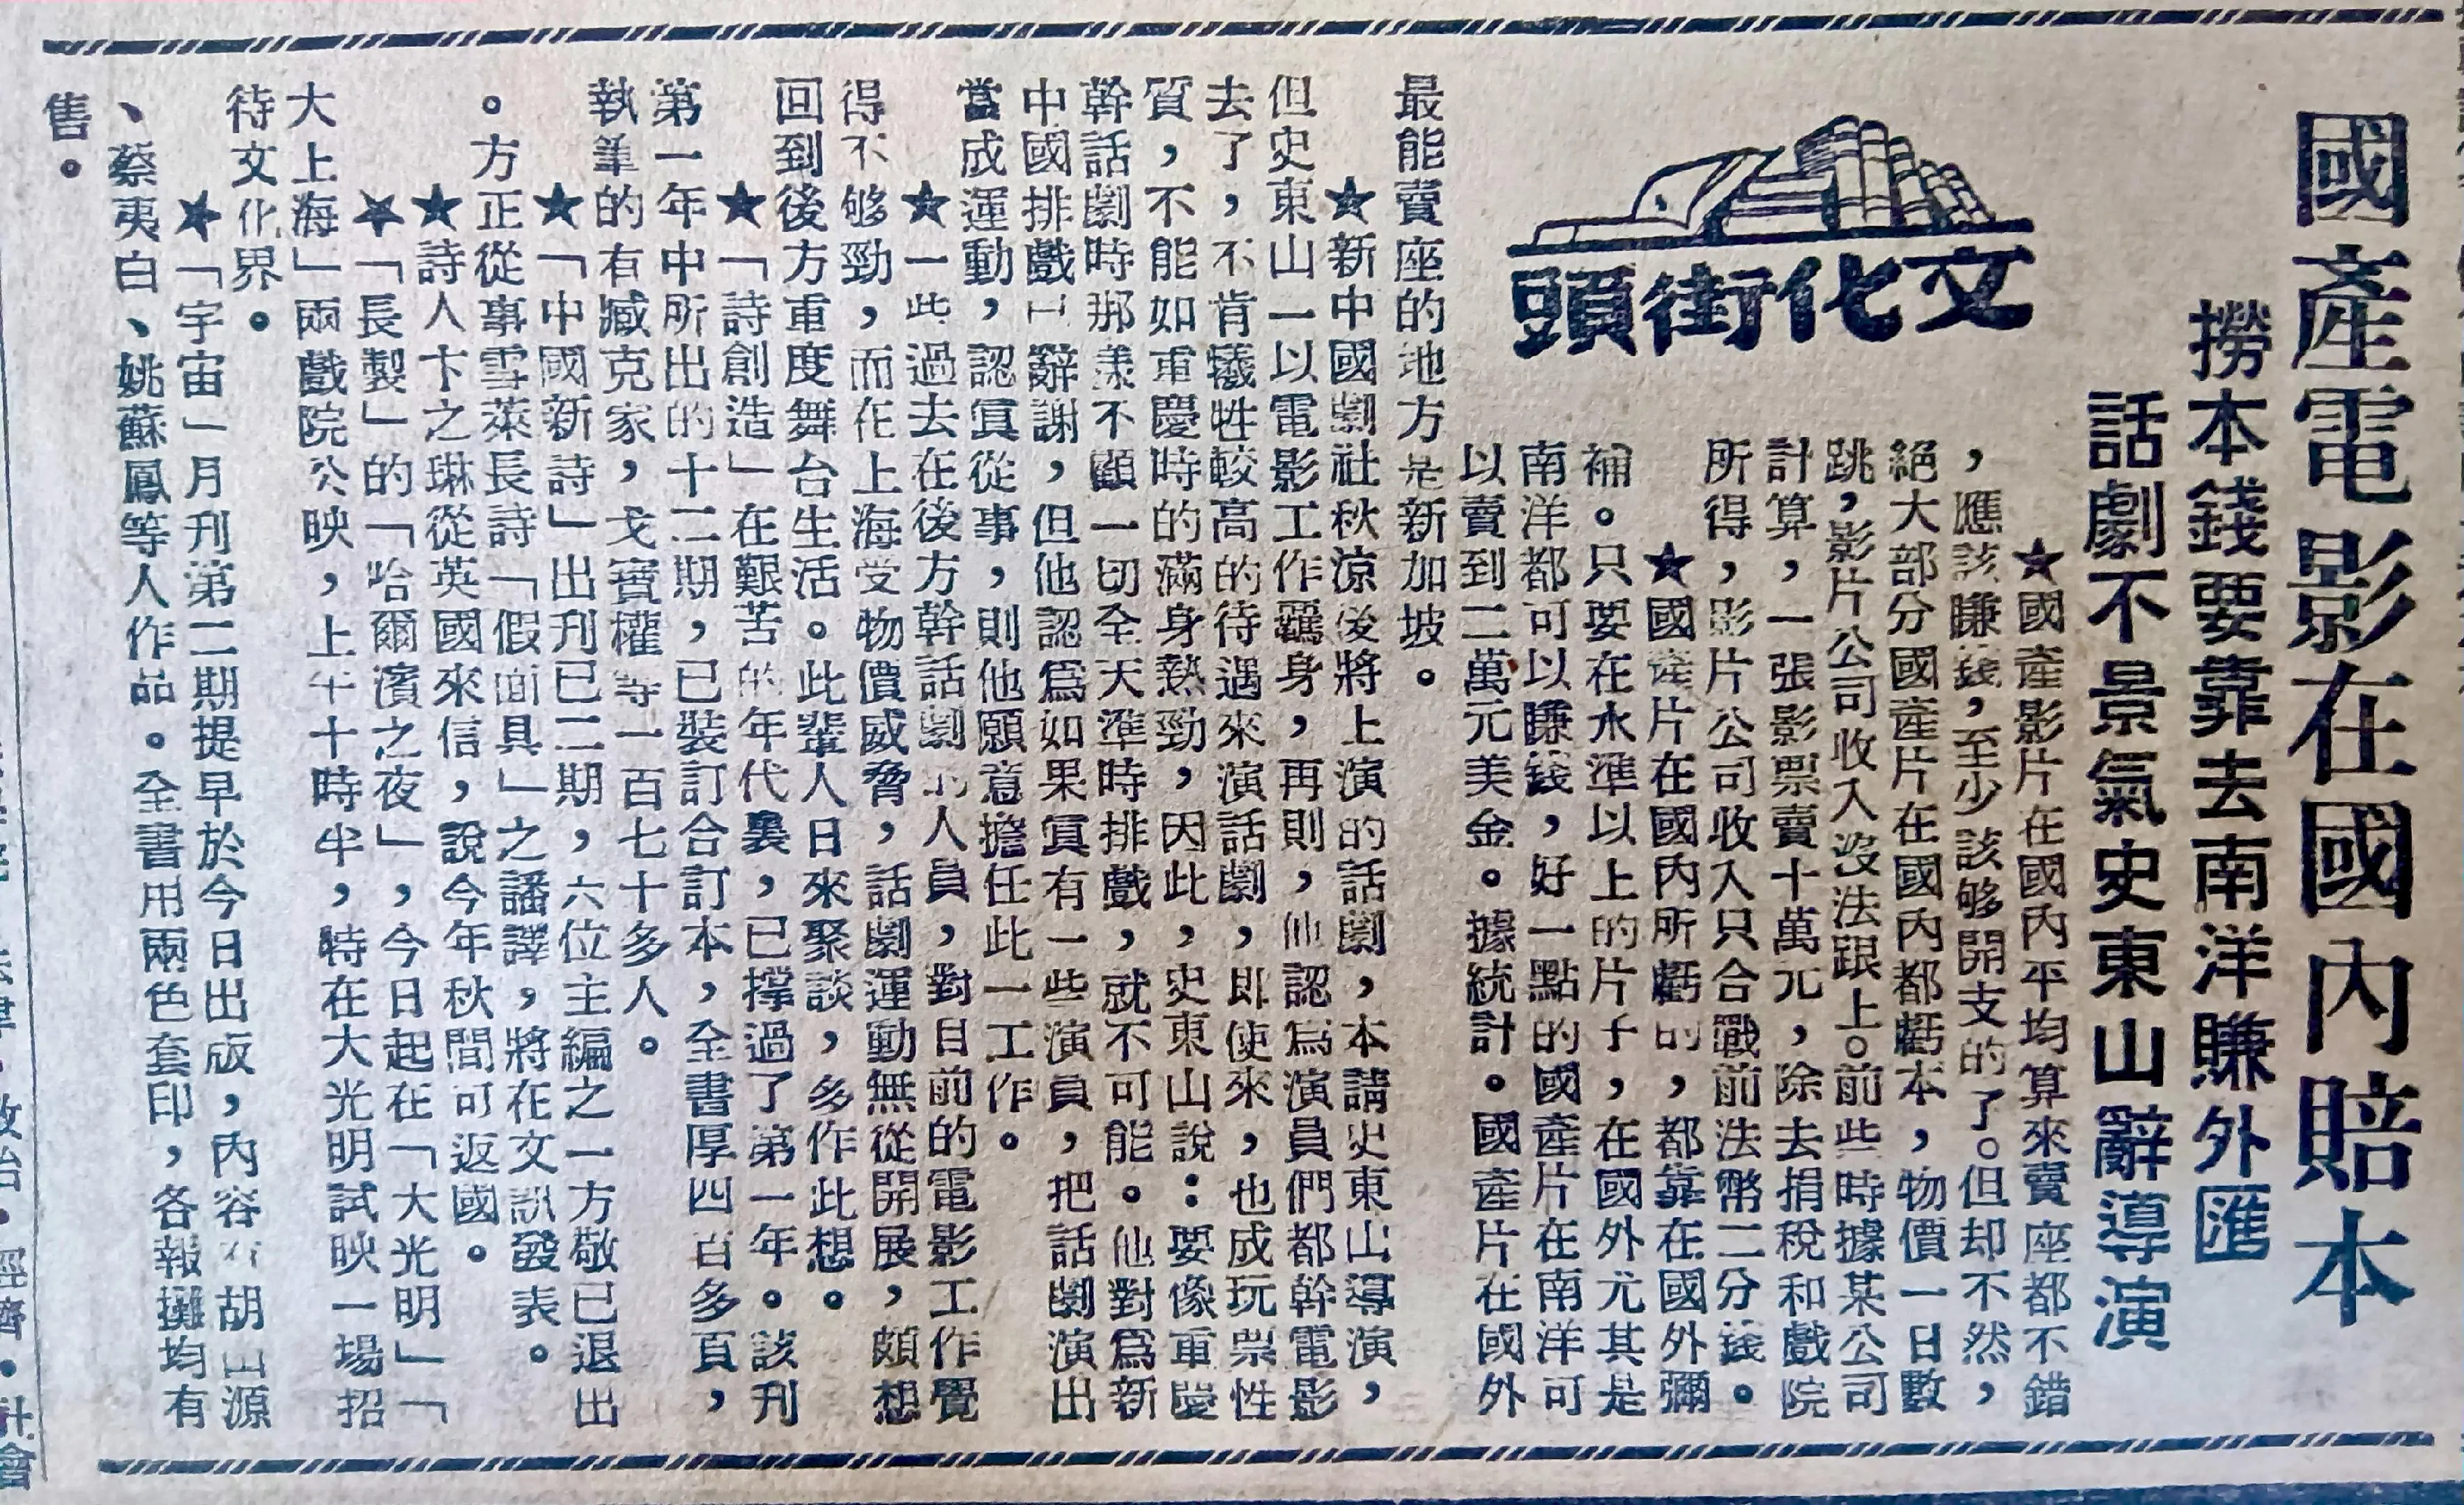 國產電影在國內賠本
撈本錢要靠去南洋賺外匯
話劇不景氣史東山辭導演
文化街頭
★國產影片在國內平均算來賣座都不錯
，應該賺錢，至少該够開支的了。但却不然，
絕大部分國產片在國內都虧本，物價一日數
跳，影片公司收入沒法跟上。前些時據某公司
計算，一張影票賣十萬元，除去捐稅和戲院
所得，影片公司收入只合戰前法幣二分錢。
★國產片在國內所虧的，都靠在國外彌
補。只要在水準以上的片子，在國外尤其是
南洋都可以賺錢，好一點的國產片在南洋可
以賣到二萬元美金。據統計。國產片在國外
最能賣座的地方是新加坡。
★新中國劇社秋涼後將上演的話劇，本請史東山導演，
但史東山一以電影工作羈身，再則，他認爲演員們都幹電影
去了，不肯犧牲較高的待遇來演話劇，即使來，也成玩票性
質，不能如重慶時的滿身熱勁，因此，史東山說：要像重慶
幹話劇時那樣不顧一切全天準時排戲，就不可能。他對爲新
中國排戲已辭謝，但他認爲如果眞有一些演員，把話劇演出
當成運動，認眞從事，則他願意擔任此一工作。
★一些過去在後方幹話劇的人員，對目前的電影工作覺
得不够勁，而在上海受物價威脅，話劇運動無從開展，頗想
回到後方重度舞台生活。此輩人日來聚談，多作此想。
★「詩創造」在艱苦的年代裏，已撐過了第一年。該刊
第一年中所出的十二期，已裝訂合訂本，全書厚四百多頁，
執筆的有臧克家，戈寶權等一百七十多人。
★「中國新詩」出刊已二期，六位主編之一方敬已退出
。方正從事雪萊長詩「假面具」之譯，將在文訊發表。
★詩人卞之琳從英國來信，說今年秋間可返國。
★「長製」的「哈爾濱之夜」，今日起在「大光明」「
大上海」兩戲院公映，上午十時半，特在大光明試映一場招
待文化界。
★「宇宙」月刊第二期提早於今日出版，內容有胡山源
、蔡夷白、姚蘇鳳等人作品。全書用兩色套印，各報攤均有
售。